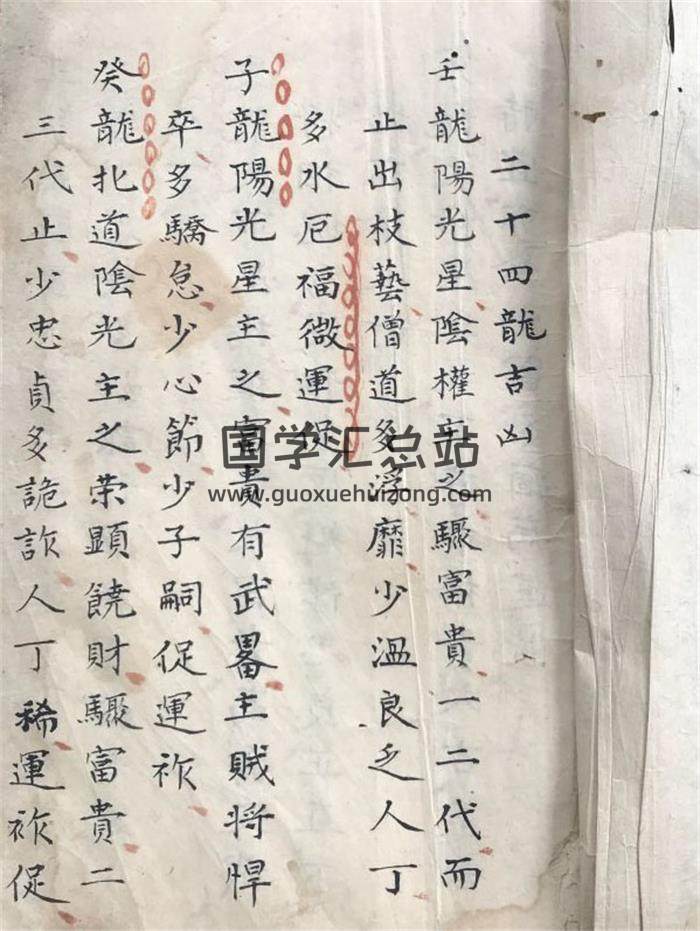 二十四龍吉凶
壬龍陽光星陰權主之驟富貴一二代而
止出枝藝僧道多浮靡少溫良乏人丁
多水厄福微運促
子龍陽光星主之富貴有武畧主賊將悍
卒多驕怠少心節少子嗣促運祚
癸龍北道陰光主之荣顯饒財驟富貴二
三代止少忠貞多詭詐人丁稀運祚促
国学汇总站
www.guoxuehuizong.com